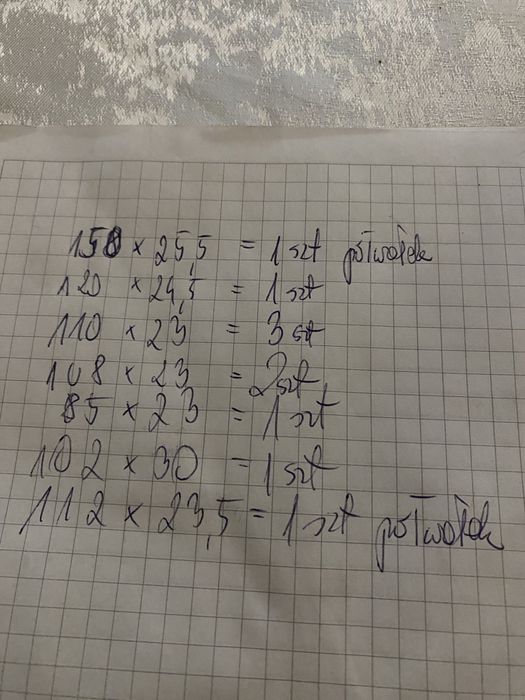 158 × 25,5 = 1 szt półwałek
120 × 24,5 = 1 szt
110 × 23 = 3 szt
108 × 23 = 2 szt
85 × 23 = 1 szt
102 × 30 = 1 szt
112 × 23,5 = 1 szt półwałek